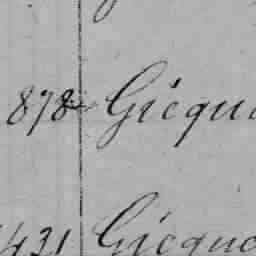 878 Gicqu
1431 Gicque